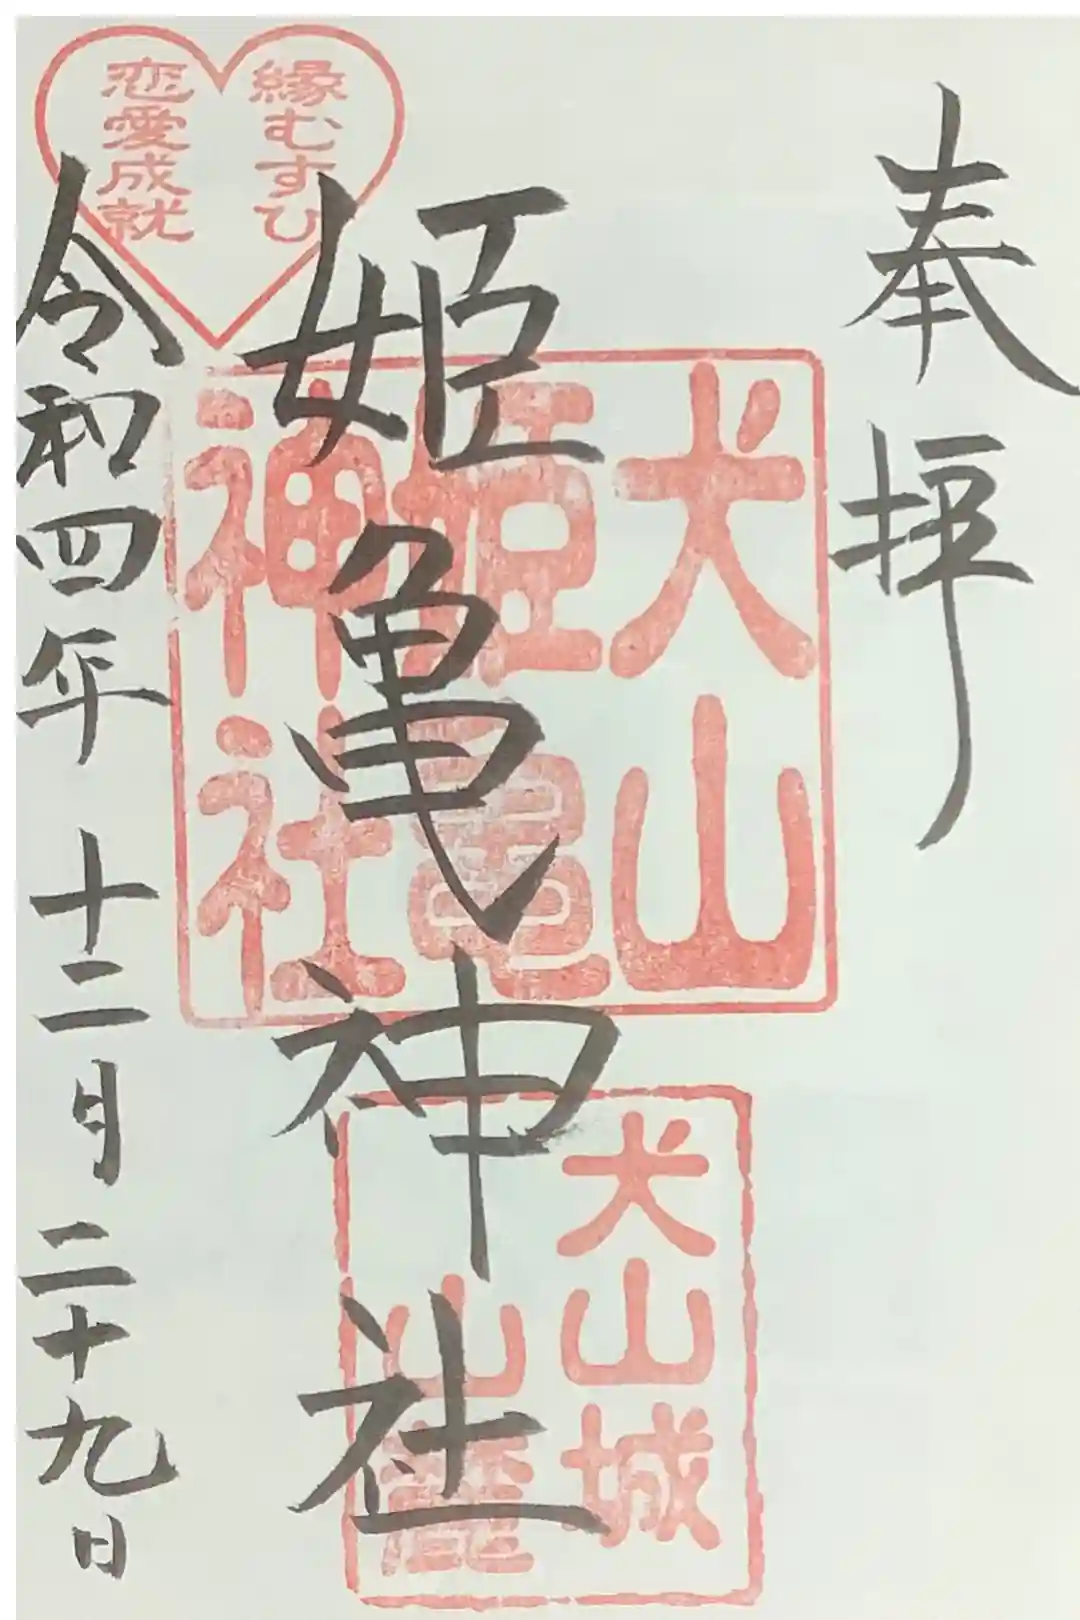 奉拝
犬山
姫亀
神社
犬山城
山麓
姫亀神社
縁むすひ
恋愛成就
令和四年十二月二十九日